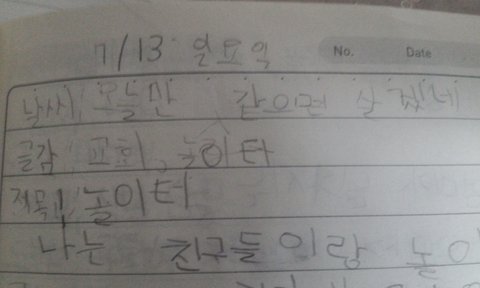 7/13 일요일 No. Date
날씨 오늘만 같으면 살겠네
글감 교회, 놀이터
제목 놀이터
나는 친구들이랑 놀이